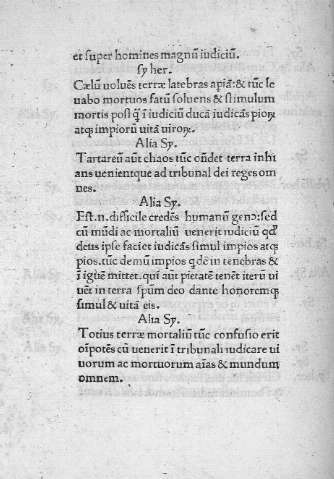 et super homines magnū iudiciū.
sy her.
Cælū uoluēs terræ latebras apiā: & tūc le
uabo mortuos fatū soluens & stimulum
mortis post q̄ ī iudiciū ducā iudicās pioꝝ
atqꝫ impiorū uitā uiroꝝ.
Alia Sy.
Tartareū aut̄ chaos tūc ondēt terra inhi
ans uenientque ad tribunal dei reges om
nes.
Alia Sy.
Est .n. difficile credēs humanū genꝰ: sed
cū mūdi ac mortaliū uenerit iudiciū qd̄
deus ipse faciet iudicās simul impios atqꝫ
pios. tūc demū impios qdē in tenebras &
ī ignē mittet. qui aut̄ pietatē tenēt iterū ui
uēt in terra spūm deo dante honoremqꝫ
simul & uitā eis.
Alia Sy.
Totius terræ mortaliū tūc confusio erit
oīpotēs cū uenerit ī tribunali iudicare ui
uorum ac mortuorum aīas & mundum
omnem.